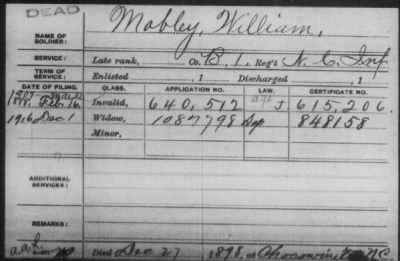 DEAD
NAME OF SOLDIER: Mobley, William,
SERVICE: Late rank, Co. B, 1, Reg't N. C. Inf
TERM OF SERVICE: Enlisted , 1 Discharged , 1
DATE OF FILING. CLASS. APPLICATION NO. LAW. CERTIFICATE NO.
Feb. 16. Invalid, 640,512 J 615,206.
1916 Dec 1 Widow, 1087798 848158
Minor,
ADDITIONAL SERVICES:
REMARKS:
Died Dec 27 1898, at Chocowinity NC